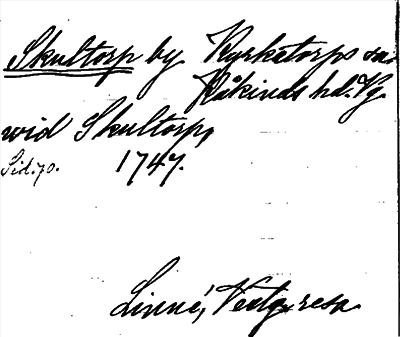 Skultorp by Kyrketorps sn
Kåkinds hd. Vg.
wid Skultorp,
Sid. 70. 1747.
Linné, Vestg. resa